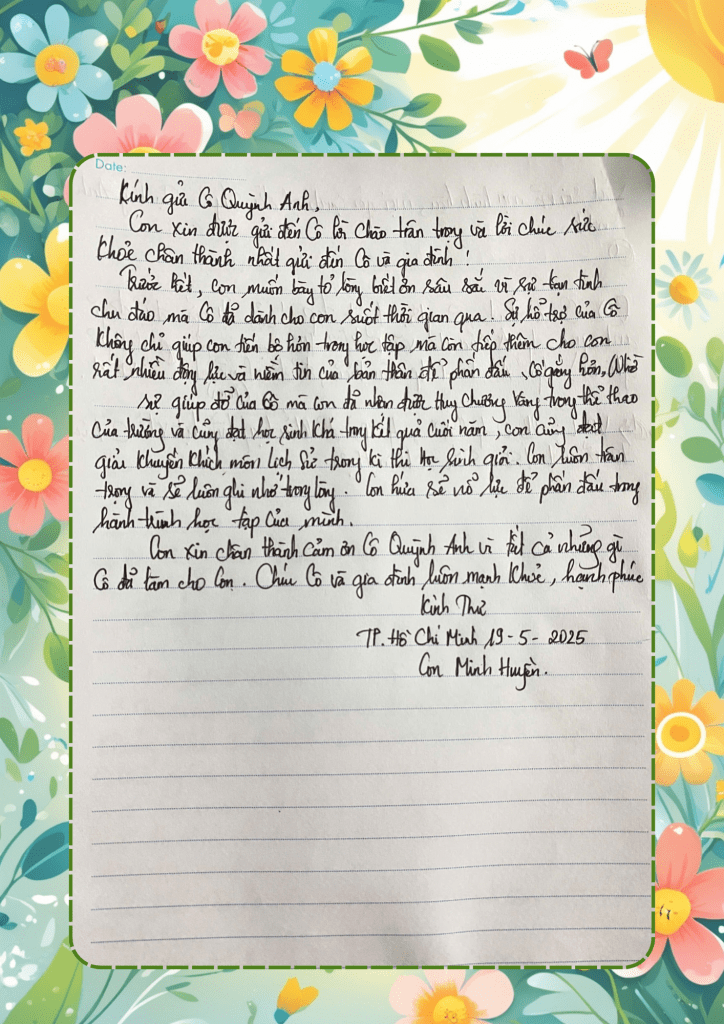 Date:
Kính gửi Cô Quỳnh Anh,
Con xin được gửi đến Cô lời chào trân trọng và lời chúc sức
khỏe chân thành nhất gửi đến Cô và gia đình !
Trước hết, con muốn bày tỏ lòng biết ơn sâu sắc vì sự tận tình
chu đáo mà Cô đã dành cho con suốt thời gian qua. Sự hỗ trợ của Cô
không chỉ giúp con tiến bộ hơn trong học tập mà còn tiếp thêm cho con
rất nhiều động lực và niềm tin của bản thân để phấn đấu, cố gắng hơn, Nhờ
sự giúp đỡ của Cô mà con đã nhận được Huy Chương Vàng trong thể thao
của trường và cũng đạt học sinh Khá trong kết quả cuối năm, con cũng đạt
giải Khuyến Khích môn Lịch Sử trong kì thi học sinh giỏi. Con luôn trân
trọng và sẽ luôn ghi nhớ trong lòng. Con hứa sẽ nổ lực để phấn đấu trong
hành trình học tập của mình.
Con xin chân thành cảm ơn Cô Quỳnh Anh vì tất cả những gì
Cô đã làm cho Con. Chúc Cô và gia đình luôn mạnh khoẻ, hạnh phúc
Kính Thư
TP. Hồ Chí Minh 19-5-2025
Con Minh Huyền.